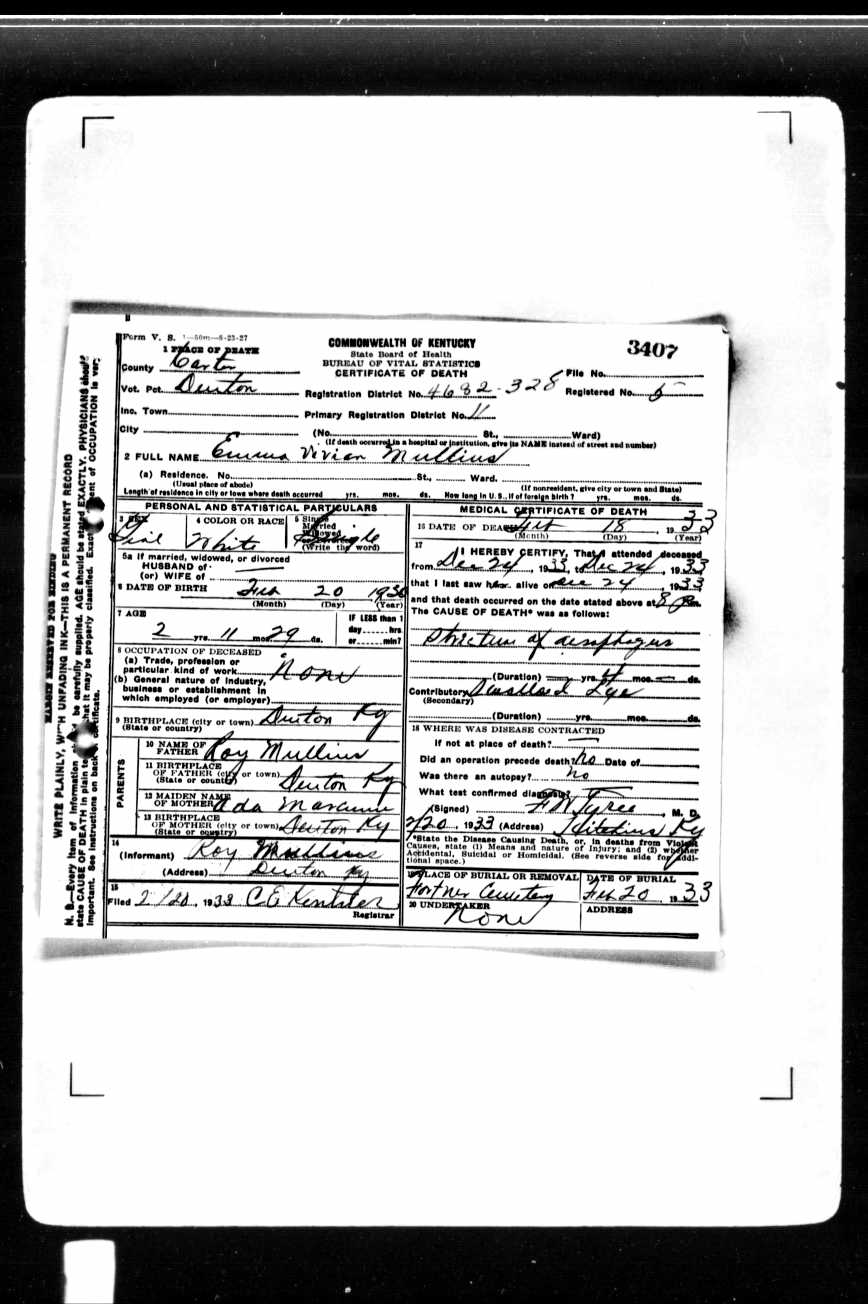 Form V. S. 1—50m—6-23-27
COMMONWEALTH OF KENTUCKY
State Board of Health
BUREAU OF VITAL STATISTICS
CERTIFICATE OF DEATH
3407
1 PLACE OF DEATH
County Carter
File No.
Vot. Pct. Denton
Registration District No. 4682-328
Registered No. 5
Inc. Town
Primary Registration District No. 11
City
(No. St., Ward)
(If death occurred in a hospital or institution, give its NAME instead of street and number)
2 FULL NAME Emma Vivian Mullins
(a) Residence. No. St., Ward.
(Usual place of abode)
(If nonresident, give city or town and State)
Length of residence in city or town where death occurred yrs. mos. ds. How long in U. S., if of foreign birth? yrs. mos. ds.
PERSONAL AND STATISTICAL PARTICULARS
3 SEX
Girl
4 COLOR OR RACE
White
5 Single
Married
Widowed
Single
(Write the word)
5a If married, widowed, or divorced
HUSBAND of
(or) WIFE of
6 DATE OF BIRTH Feb 20 1930
(Month) (Day) (Year)
7 AGE
2 yrs. 11 mos. 29 ds.
IF LESS than 1
day hrs.
or min?
8 OCCUPATION OF DECEASED
(a) Trade, profession or
particular kind of work None
(b) General nature of industry,
business or establishment in
which employed (or employer)
9 BIRTHPLACE (city or town) Denton Ky
(State or country)
PARENTS
10 NAME OF
FATHER Roy Mullins
11 BIRTHPLACE
OF FATHER (city or town) Denton Ky
(State or country)
12 MAIDEN NAME
OF MOTHER Ada
13 BIRTHPLACE
OF MOTHER (city or town) Denton Ky
(State or country)
14
(Informant) Roy Mullins
(Address) Denton Ky
15
Filed 2/20, 1933 C E
Registrar
MEDICAL CERTIFICATE OF DEATH
16 DATE OF DEATH Feb 18, 1933
(Month) (Day) (Year)
17
I HEREBY CERTIFY, That I attended deceased
from Dec 24, 1933, to Dec 24, 1933
that I last saw her alive on Dec 24, 1933
and that death occurred on the date stated above at 8 P.m.
The CAUSE OF DEATH* was as follows:
Stricture of aesophagus
(Duration) yrs. mos. ds.
Contributory Swallowed Lye
(Secondary)
(Duration) yrs. mos. ds.
18 WHERE WAS DISEASE CONTRACTED
If not at place of death?
Did an operation precede death? No Date of
Was there an autopsy? No
What test confirmed diagnosis?
(Signed) F W Tyree, M. D.
2/20, 1933 (Address) Hitchins Ky
*State the Disease Causing Death, or, in deaths from Violent
Causes, state (1) Means and nature of Injury; and (2) whether
Accidental, Suicidal or Homicidal. (See reverse side for additional space.)
19 PLACE OF BURIAL OR REMOVAL
Fortner Cemetery
DATE OF BURIAL
Feb 20, 1933
20 UNDERTAKER
None
ADDRESS
MARGIN RESERVED FOR BINDING
WRITE PLAINLY, WITH UNFADING INK—THIS IS A PERMANENT RECORD
N. B.—Every item of information should be carefully supplied. AGE should be stated EXACTLY, PHYSICIANS should
state CAUSE OF DEATH in plain terms, so that it may be properly classified. Exact statement of OCCUPATION is very
important. See instructions on back of certificate.